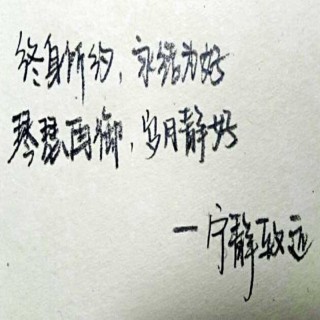 终身所约，永结为好
琴瑟再御，岁月静好
一宁静致远